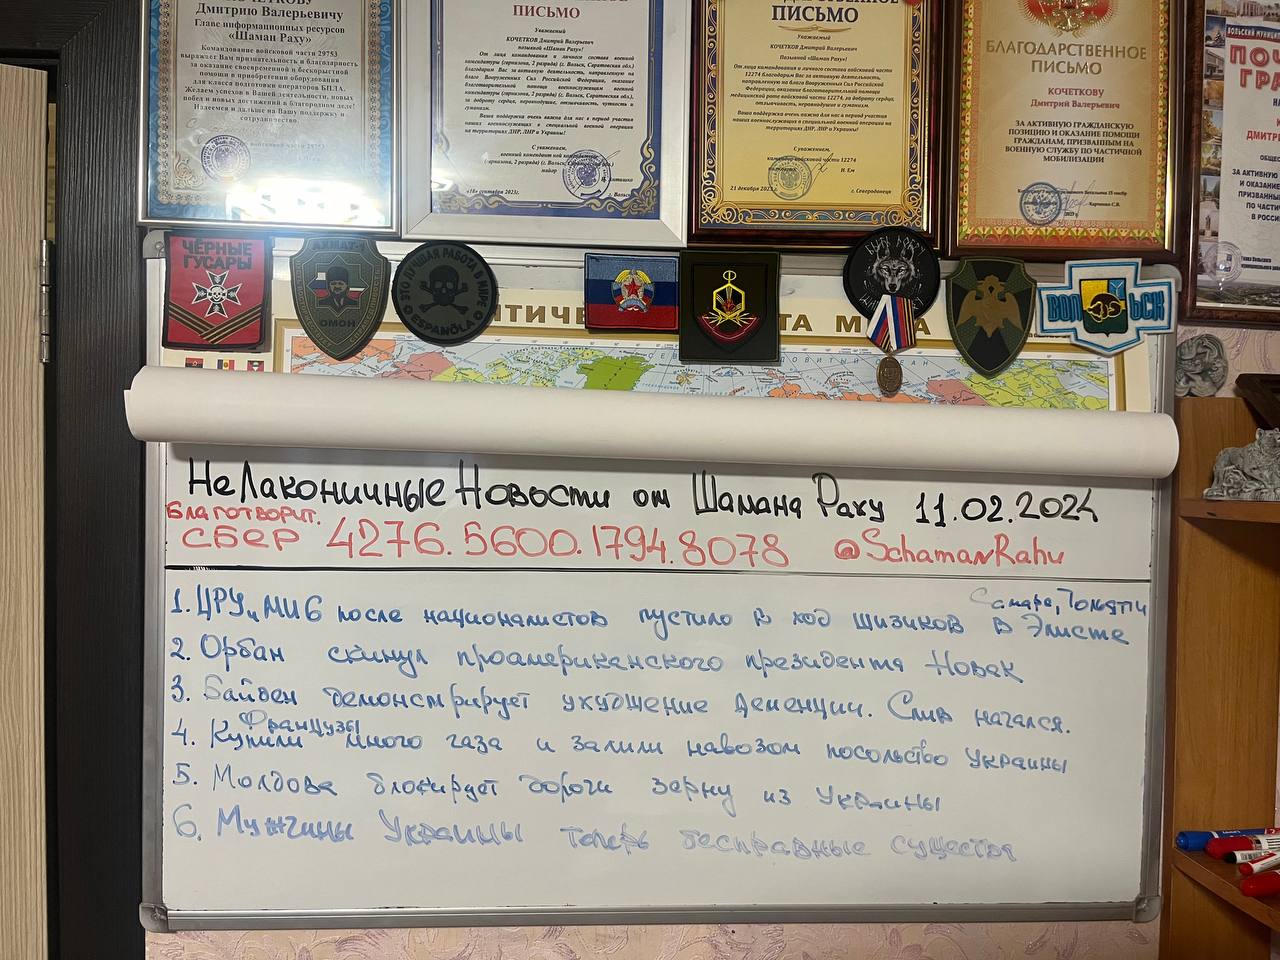 Дмитрию Валерьевичу
Главе информационных ресурсов
«Шаман Раху»
Командование войсковой части 29753
выражает Вам признательность и благодарность
за оказание своевременной и бескорыстной
помощи в приобретении оборудования
для класса подготовки операторов БПЛА.
Желаем успехов в Вашей деятельности, новых
побед и новых достижений в благородном деле!
Надеемся и дальше на Вашу поддержку и
сотрудничество
войсковой части 29753
ПИСЬМО
Уважаемый
КОЧЕТКОВ Дмитрий Валерьевич
позывной «Шаман Раху»!
От лица командования и личного состава военной
комендатуры (гарнизона, 2 разряда) (г. Вольск, Саратовская обл.)
благодарим Вас за активную деятельность, направленную на
благо Вооруженных Сил Российской Федерации, оказание
благотворительной помощи военнослужащим военной
комендатуры (гарнизона, 2 разряда) (г. Вольск, Саратовская обл.),
за доброту сердца, неравнодушие, отзывчивость, чуткость и
гуманизм.
Ваша поддержка очень важна для нас в период участия
наших военнослужащих в специальной военной операции
на территориях ДНР, ЛНР и Украины!
С уважением,
военный комендант военной
(гарнизона, 2 разряда) (г. Вольск, Саратовская обл.)
майор
«18» сентября 2023г.
г. Вольск
ПИСЬМО
Уважаемый
КОЧЕТКОВ Дмитрий Валерьевич
Позывной «Шаман Раху»!
От лица командования и личного состава войсковой части
12274 благодарим Вас за активную деятельность, направленную
на благо Вооруженных Сил Российской Федерации, оказание
благотворительной помощи военнослужащим
медицинской роте войсковой части 12274, за доброту сердца,
отзывчивость, неравнодушие и гуманизм.
Ваша поддержка очень важна для нас в период участия
наших военнослужащих в специальной военной операции на
территориях ДНР, ЛНР и Украины!
С уважением,
командир войсковой части 12274
Н. Ем
21 декабря 2023 г.
г. Северодонецк
БЛАГОДАРСТВЕННОЕ
ПИСЬМО
КОЧЕТКОВУ
Дмитрий Валерьевич
ЗА АКТИВНУЮ ГРАЖДАНСКУЮ
ПОЗИЦИЮ И ОКАЗАНИЕ ПОМОЩИ
ГРАЖДАНАМ, ПРИЗВАННЫМ НА
ВОЕННУЮ СЛУЖБУ ПО ЧАСТИЧНОЙ
МОБИЛИЗАЦИИ
ЧЁРНЫЕ
ГУСАРЫ
АХМАТ-1
ОМОН
ЭТО ЛУЧШАЯ РАБОТА В МИРЕ
ESPAÑOLA
ВОЛЬСК
НеЛаконичные Новости от Шамана Раху 11.02.2024
Благотворит.
СБЕР 4276.5600.1794.8078 @SchamanRahu
Самара, Тольятти
1. ЦРУ и МИ6 после националистов пустило в ход шизиков в Элисте
2. Орбан скинул проамериканского президента Новак
3. Байден демонстрирует ухудшение деменции. Слив начался.
Французы
4. Купили много газа и залили навозом посольство Украины
5. Молдова блокирует дороги зерну из Украины
6. Мужчины Украины теперь бесправные существа